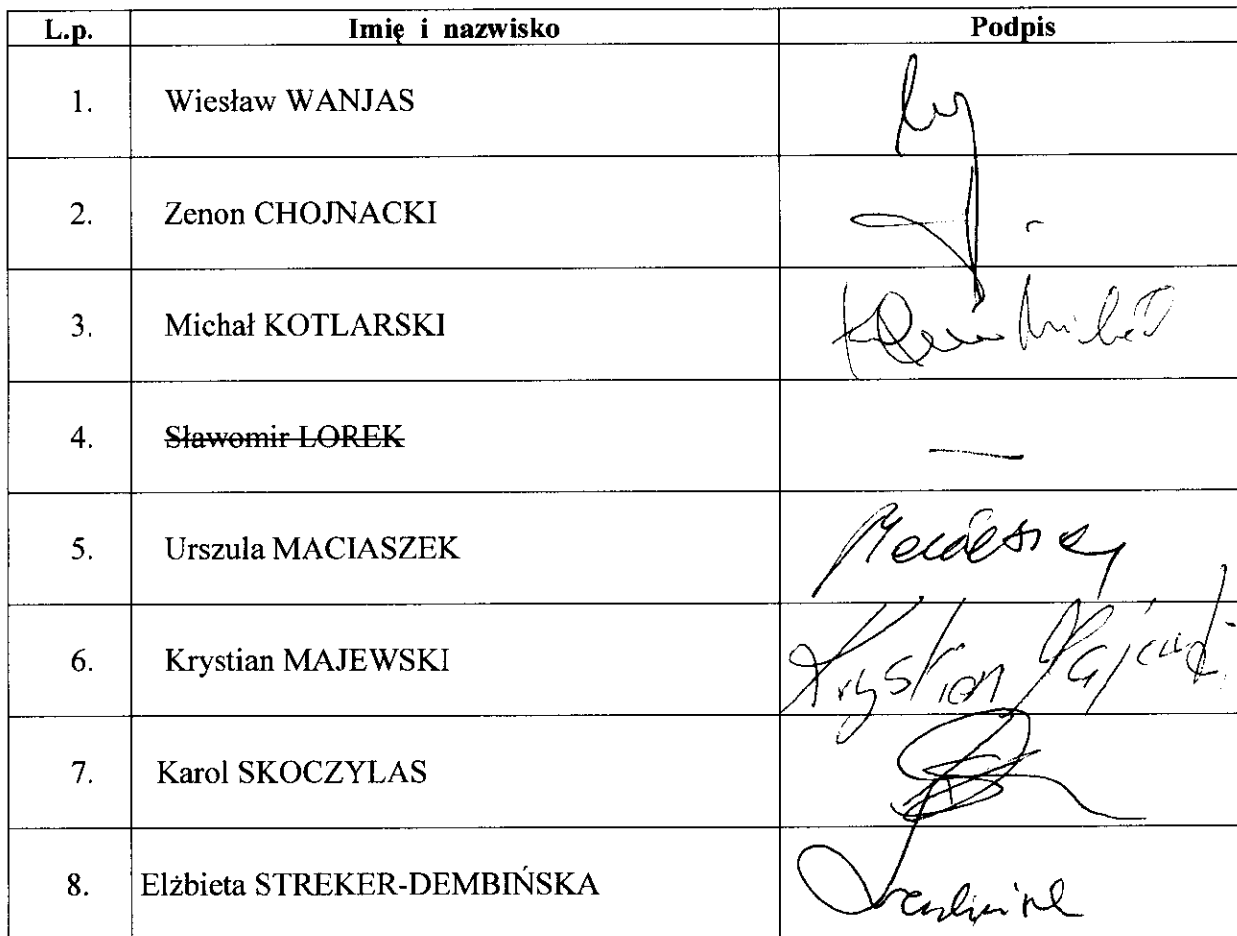 L.p. Imię i nazwisko Podpis
1. Wiesław WANJAS
2. Zenon CHOJNACKI
3. Michał KOTLARSKI
4. Sławomir LOREK —
5. Urszula MACIASZEK
6. Krystian MAJEWSKI Krystian
7. Karol SKOCZYLAS
8. Elżbieta STREKER-DEMBIŃSKA